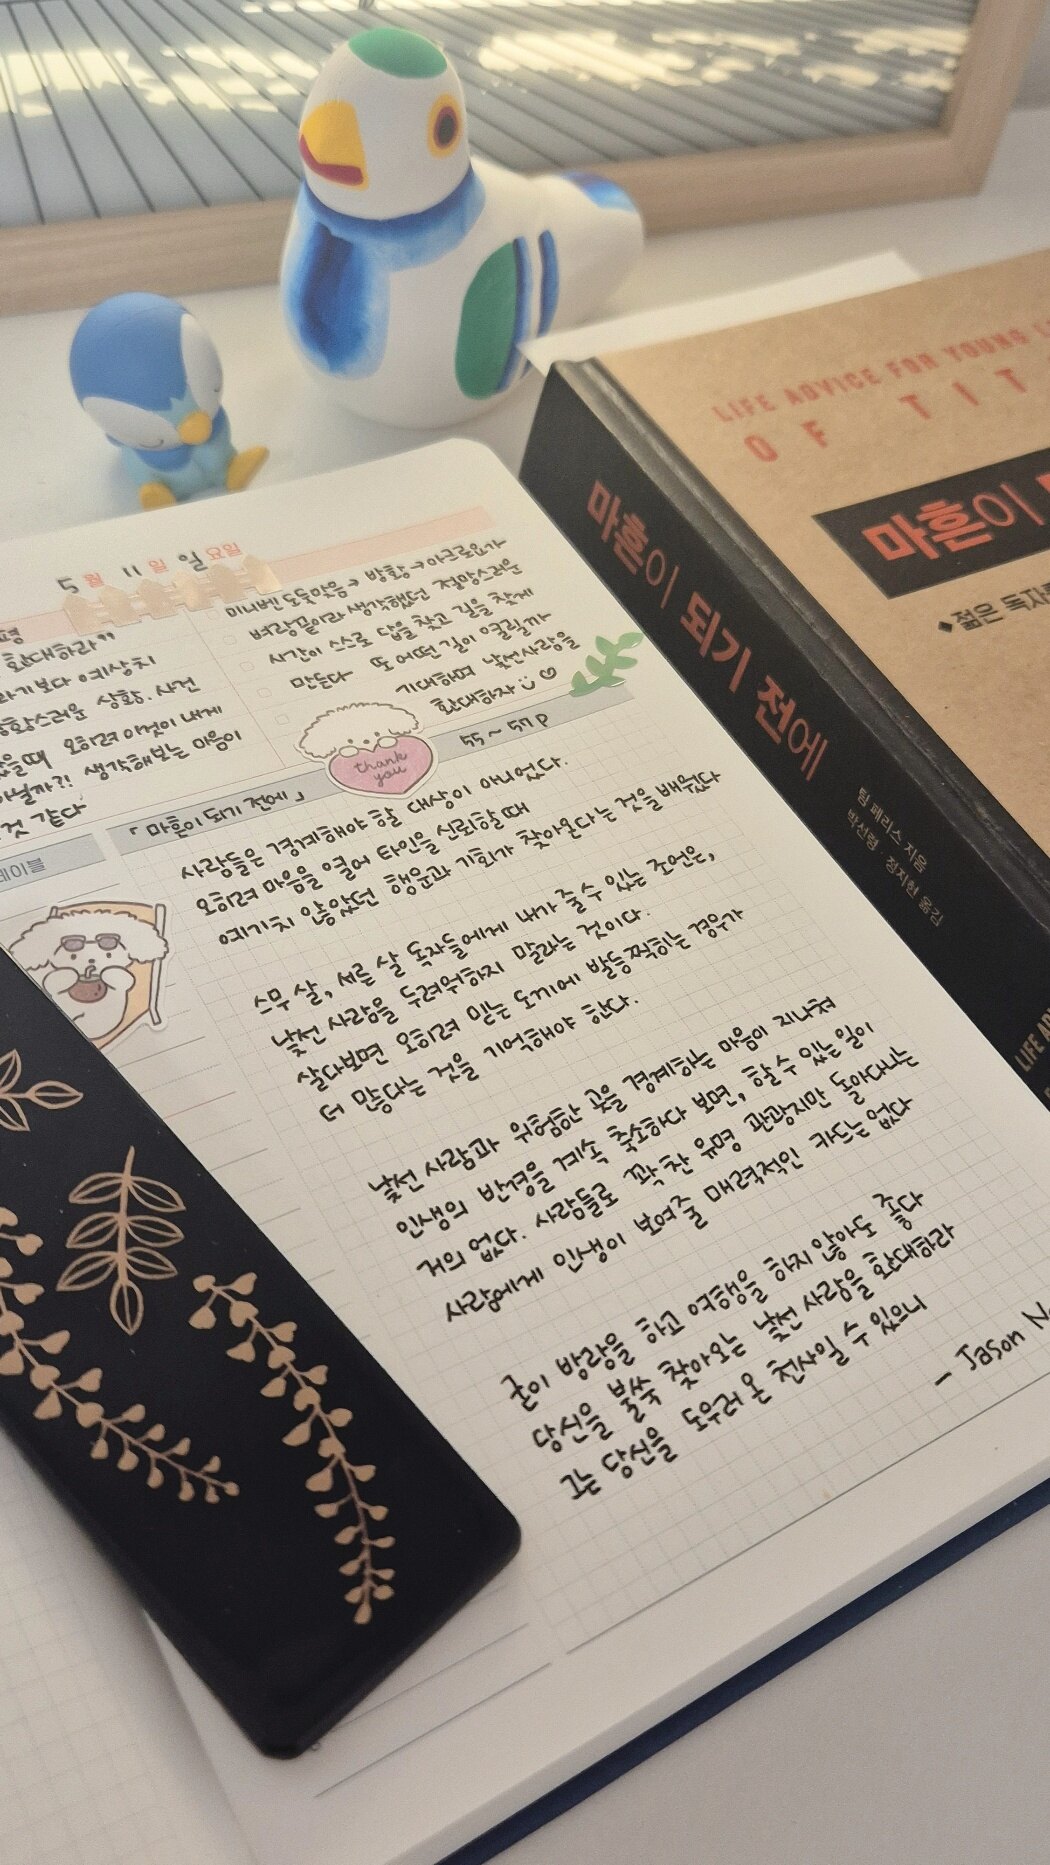 5월 11일 일요일
환대하라"
예상치
상황. 사건
오히려 이것이 내게
아닐까?! 생각해보는 마음이
것 같다
미니벤 도둑맞음→ 방황→아크로요가
벼랑끝이라 생각했던 절망스러운
시간이 스스로 답을 찾고 길을 찾게
만든다- 또 어떤 길이 열릴까
기대하며 낯선사람을
환대하자
thank
you
「마흔이 되기 전에」 55~57p
사람들은 경계해야 할 대상이 아니었다.
오히려 마음을 열어 타인을 신뢰할 때
예기치 않았던 행운과 기회가 찾아온다는 것을 배웠다
스무 살, 서른 살 독자들에게 내가 줄 수 있는 조언은,
낯선 사람을 두려워하지 말라는 것이다.
살다보면 오히려 믿는 도끼에 발등 찍히는 경우가
더 많다는 것을 기억해야 한다.
낯선 사람과 위험한 곳을 경계하는 마음이 지나쳐
인생의 반경을 계속 축소하다 보면, 할 수 있는 일이
거의 없다. 사람들로 꽉 찬 유명 관광지만 돌아다니는
사람에게 인생이 보여줄 매력적인 카드는 없다
굳이 방랑을 하고 여행을 하지 않아도 좋다
당신을 불쑥 찾아오는 낯선 사람을 환대하라
그는 당신을 도우러 온 천사일 수 있으니
- Jason
마흔이 되기 전에
팀 페리스 지음
박선령·정지현 옮김
LIFE ADVICE FOR YOUNG
OF TIT
마흔이
◆젊은 독자
LIFE